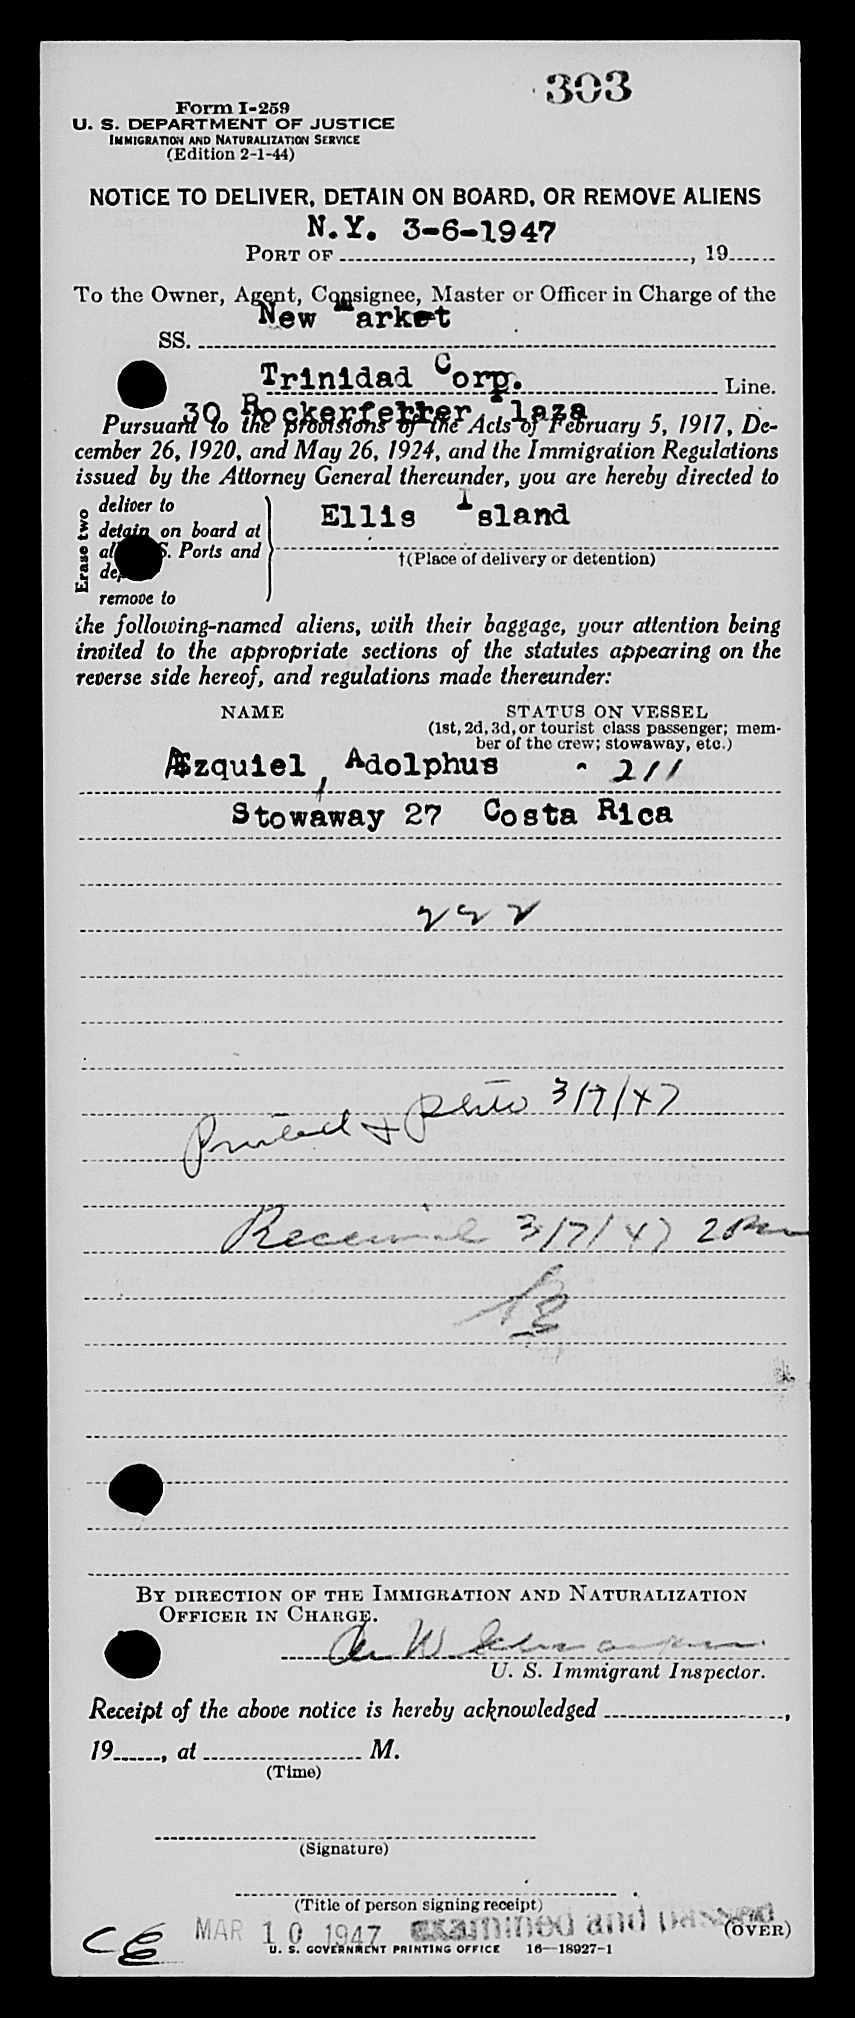 303
Form I-259
U. S. DEPARTMENT OF JUSTICE
IMMIGRATION AND NATURALIZATION SERVICE
(Edition 2-1-44)
NOTICE TO DELIVER, DETAIN ON BOARD, OR REMOVE ALIENS
N.Y. 3-6-1947
PORT OF , 19
To the Owner, Agent, Consignee, Master or Officer in Charge of the
New Market
SS.
Trinidad Corp.
Line.
30 Rockerfeller Plaza
Pursuant to the provisions of the Acts of February 5, 1917, De-
cember 26, 1920, and May 26, 1924, and the Immigration Regulations
issued by the Attorney General thereunder, you are hereby directed to
Erase two
deliver to
detain on board at
all S. Ports and
remove to
Ellis Island
†(Place of delivery or detention)
the following-named aliens, with their baggage, your attention being
invited to the appropriate sections of the statutes appearing on the
reverse side hereof, and regulations made thereunder:
NAME
STATUS ON VESSEL
(1st, 2d, 3d, or tourist class passenger; mem-
ber of the crew; stowaway, etc.)
Ezquiel, Adolphus - 211
Stowaway 27 Costa Rica
Printed & Photo 3/7/47
Received 3/7/47 2 PM
BY DIRECTION OF THE IMMIGRATION AND NATURALIZATION
OFFICER IN CHARGE.
U. S. Immigrant Inspector.
Receipt of the above notice is hereby acknowledged ,
19 , at M.
(Time)
(Signature)
(Title of person signing receipt)
MAR 10 1947 examined and passed
(OVER)
U. S. GOVERNMENT PRINTING OFFICE 16—18927-1